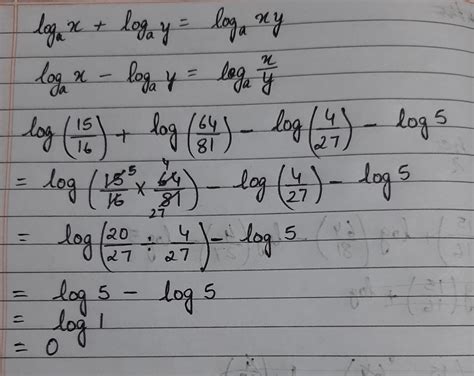 logₐ x + logₐ y = logₐ xy
logₐ x − logₐ y = logₐ x/y
log(15/16) + log(64/81) − log(4/27) − log 5
= log(15/16 5 × 4 64/81 27) − log(4/27) − log 5
= log(20/27 ÷ 4/27) − log 5
= log 5 − log 5
= log 1
= 0